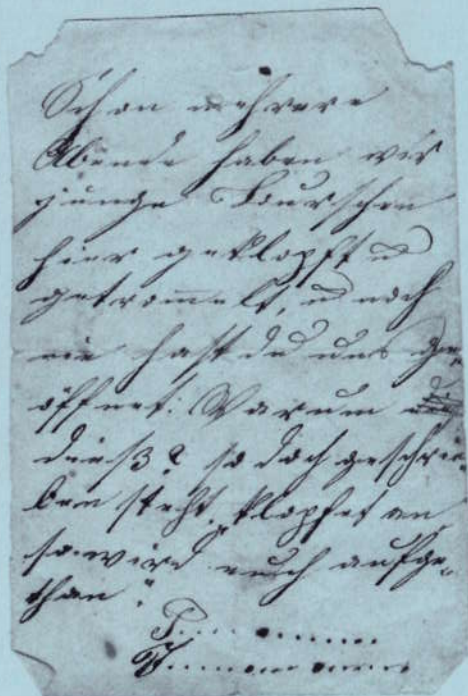 Schon mehrere
Abende haben wir
junge Burschen
hier geklopft u
getrom̅elt, u noch
nie hast du uns ge„
öffnet: Warum
dieß? so doch geschrie„
ben steht „klopfet an
so wird euch aufge„
than“.